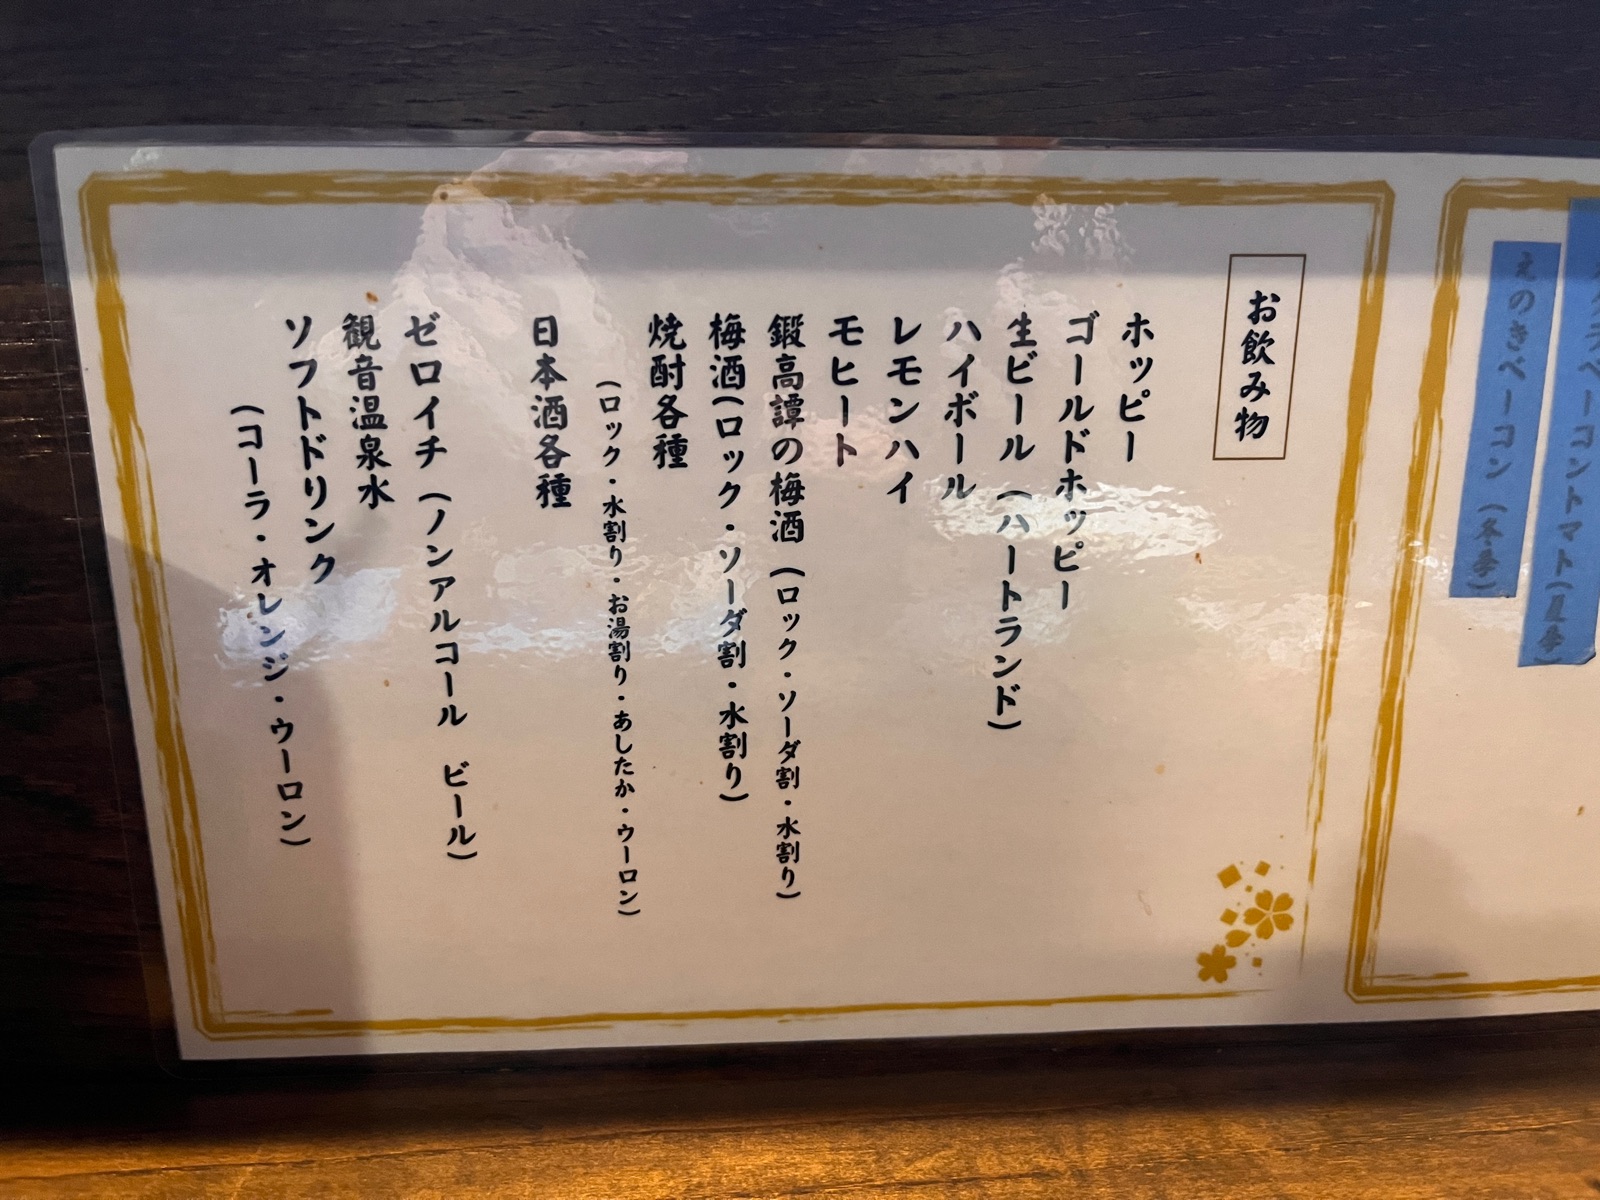 えのきベーコン(冬季)
お飲み物
ホッピー
ゴールドホッピー
生ビール(ハートランド)
ハイボール
レモンハイ
モヒート
鍛高譚の梅酒(ロック・ソーダ割・水割り)
梅酒(ロック・ソーダ割・水割り)
焼酎各種
(ロック・水割り・お湯割り・あしたか・ウーロン)
日本酒各種
ゼロイチ(ノンアルコール ビール)
観音温泉水
ソフトドリンク
(コーラ・オレンジ・ウーロン)